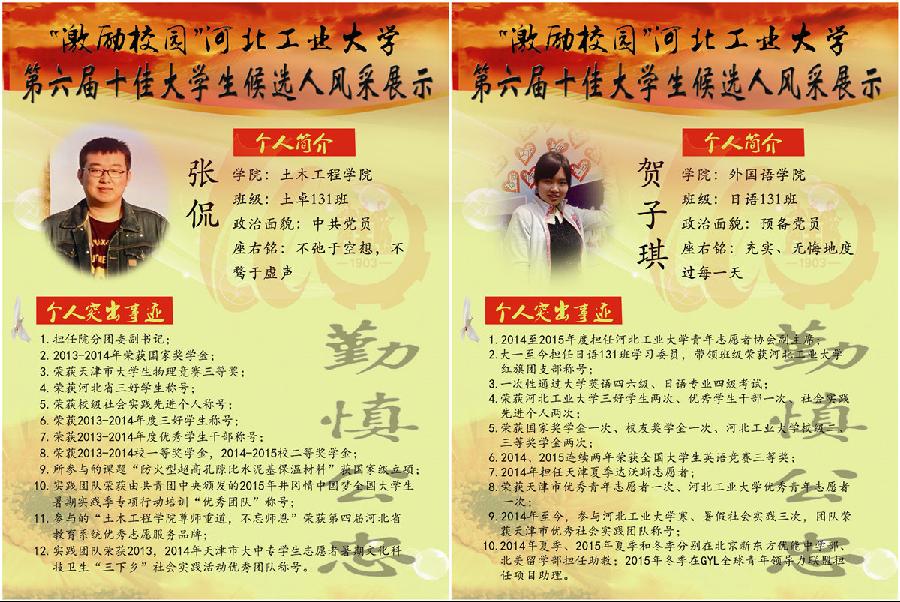 “激励校园”河北工业大学
第六届十佳大学生候选人风采展示
个人简介
张侃
学院：土木工程学院
班级：土卓131班
政治面貌：中共党员
座右铭：不弛于空想，不
骛于虚声
1903
个人突出事迹
1. 担任院分团委副书记；
2. 2013-2014年荣获国家奖学金；
3. 荣获天津市大学生物理竞赛三等奖；
4. 荣获河北省三好学生称号；
5. 荣获校级社会实践先进个人称号；
6. 荣获2013-2014年度三好学生称号；
7. 荣获2013-2014年度优秀学生干部称号；
8. 荣获2013-2014校一等奖学金，2014-2015校二等奖学金；
9. 所参与的课题“防火型超高孔隙比水泥基保温材料”获国家级立项；
10. 实践团队荣获由共青团中央颁发的2015年井冈情中国梦全国大学生
暑期实践季专项行动培训“优秀团队”称号；
11. 参与的“土木工程学院尊师重道，不忘师恩”荣获第四届河北省
教育系统优秀志愿服务品牌；
12. 实践团队荣获2013，2014年天津市大中专学生志愿者暑期文化科
技卫生“三下乡”社会实践活动优秀团队称号。
勤慎公忠
“激励校园”河北工业大学
第六届十佳大学生候选人风采展示
个人简介
贺子琪
学院：外国语学院
班级：日语131班
政治面貌：预备党员
座右铭：充实、无悔地度
过每一天
1903
个人突出事迹
1. 2014至2015年度担任河北工业大学青年志愿者协会副主席；
2. 大一至今担任日语131班学习委员，带领班级荣获河北工业大学
红旗团支部称号；
3. 一次性通过大学英语四六级、日语专业四级考试；
4. 荣获河北工业大学三好学生两次、优秀学生干部一次、社会实践
先进个人两次；
5. 荣获国家奖学金一次、校友奖学金一次、河北工业大学校级二、
三等奖学金两次；
6. 2014、2015连续两年荣获全国大学生英语竞赛三等奖；
7. 2014年担任天津夏季达沃斯志愿者；
8. 荣获天津市优秀青年志愿者一次、河北工业大学优秀青年志愿者
一次；
9. 2014年至今，参与河北工业大学寒、暑假社会实践三次，团队荣
获天津市优秀社会实践团队称号；
10. 2014年夏季、2015年夏季和冬季分别在北京新东方优能中学部、
北美留学部担任助教；2015年冬季在GYL全球青年领导力联盟担
任项目助理。
勤慎公忠